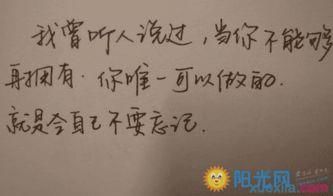 我曾听人说过，当你不能够
再拥有．你唯一可以做的．
就是令自己不要忘记．
阳光网
xuexila.com